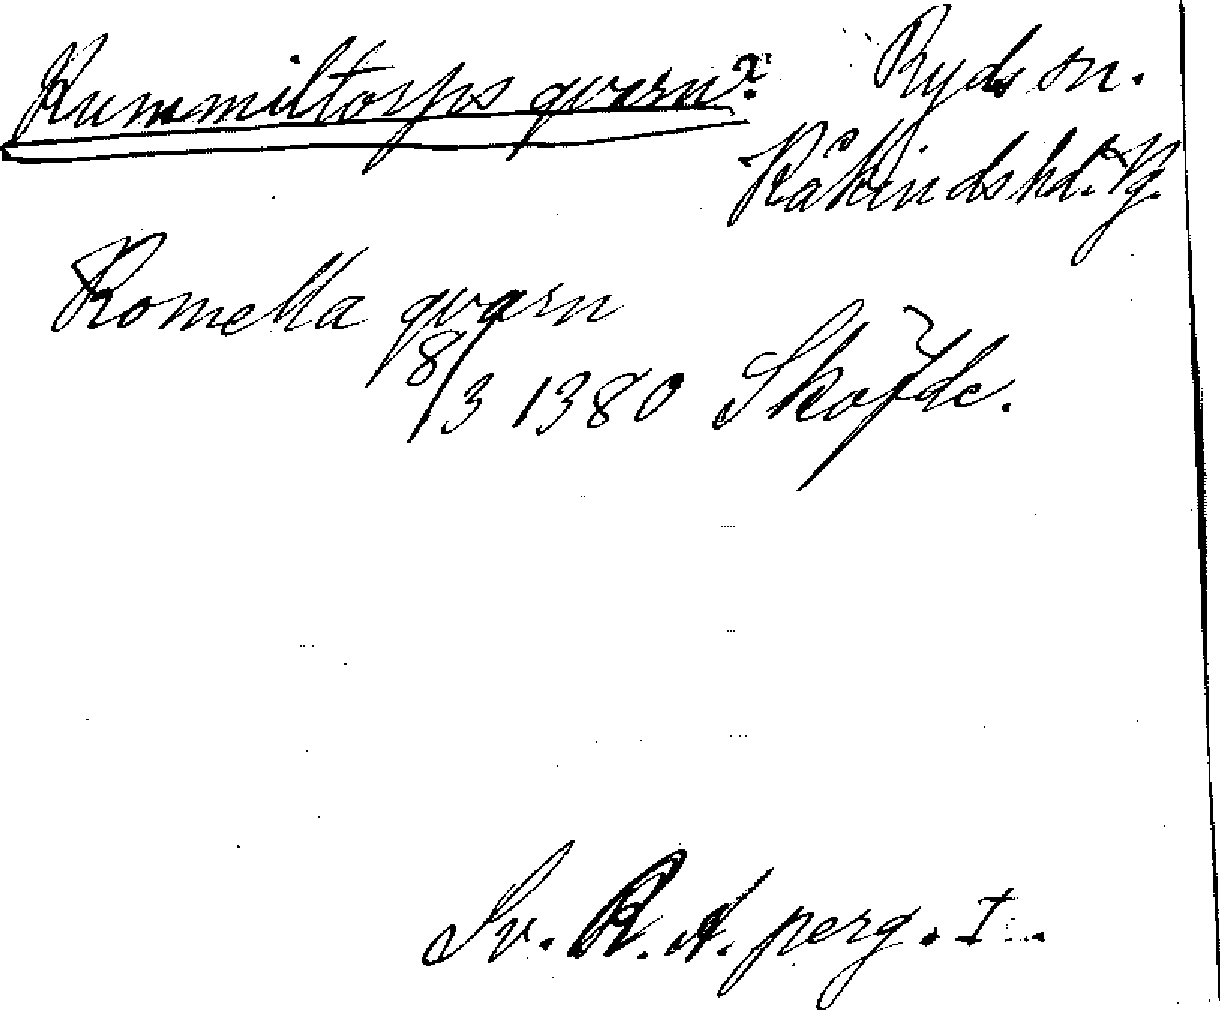 Kummiltorps qvarn? Ryds sn.
Kåkinds hd. Vg.
Romella qvarn
8/3 1380 Skøfde.
Sv. R. A. perg. I.